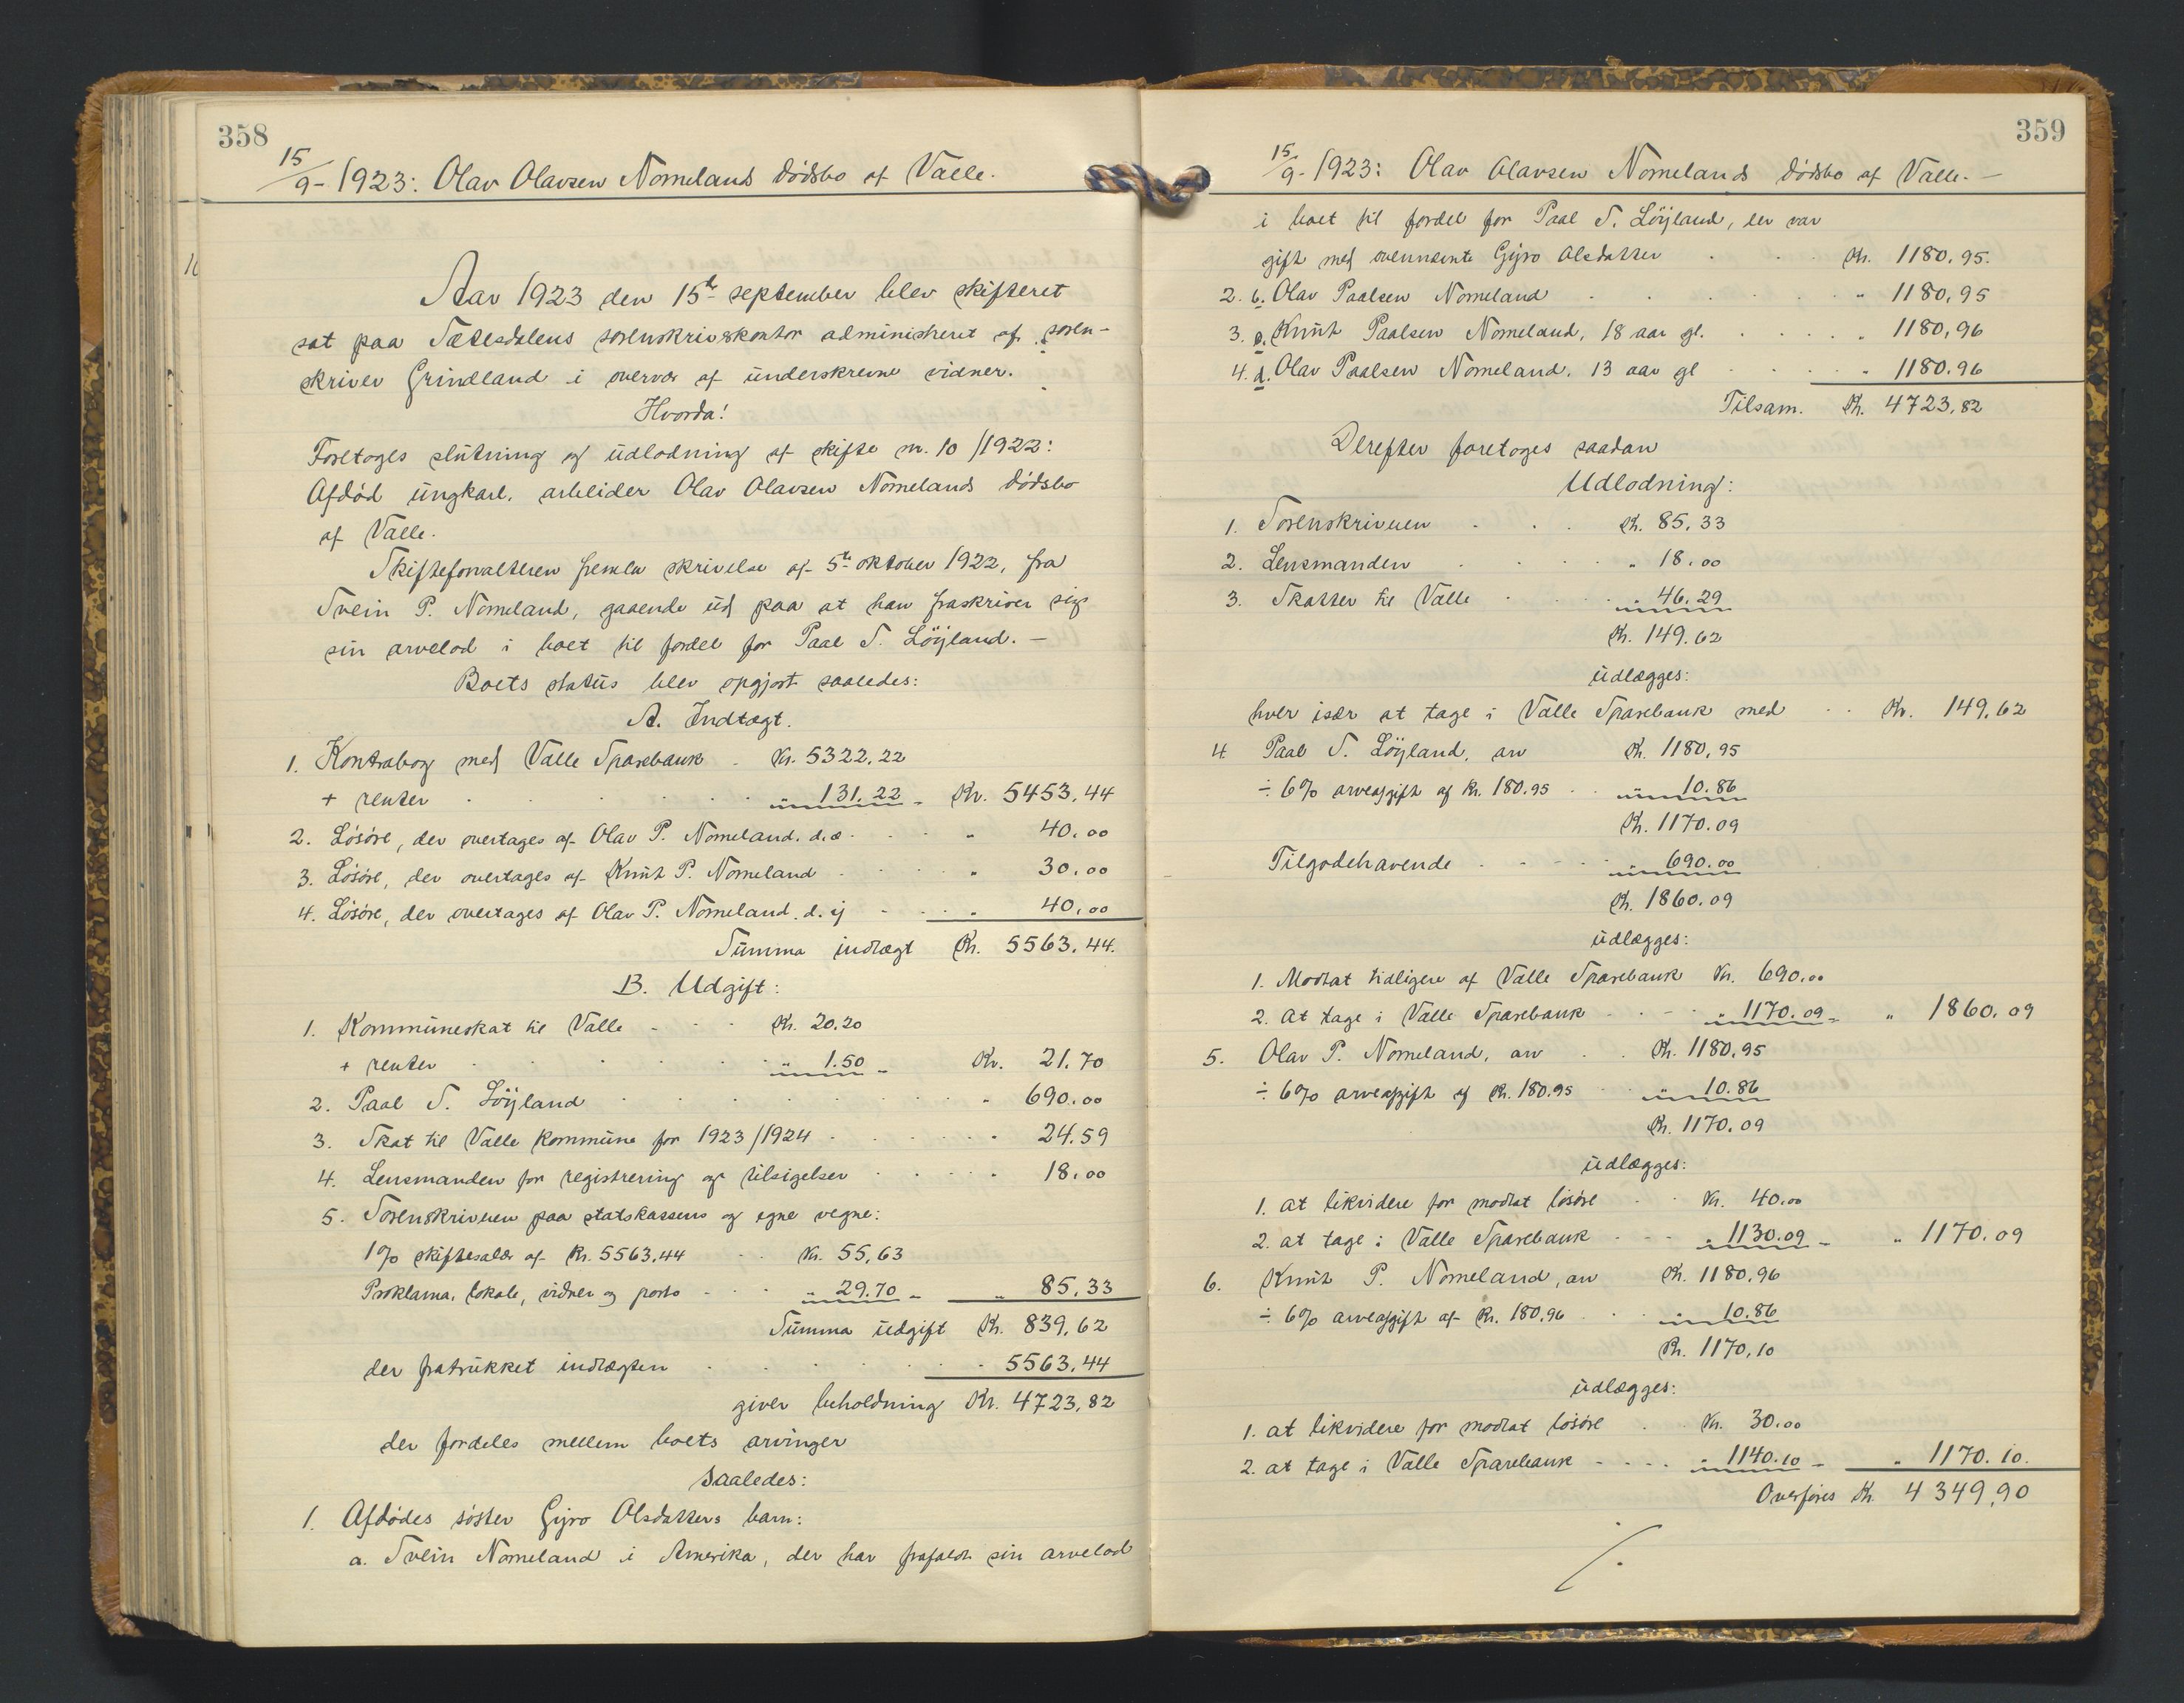 358
15/9 - 1923: Olav Olavsen Nomelands dödsbo af Valle.
Aar 1923 den 15de september blev skifteret
sat paa Sætesdalens sorenskriverkontor administreret af soren-
skriver Grindland i overvær af underskrevne vidner.
Hvorda!
Foretoges slutning og udlodning af skifte nr. 10/1922:
Afdöd ungkarl, arbeider Olav Olavsen Nomelands dödsbo
af Valle.
Skifteforvalteren fremla skrivelse af 5te oktober 1922, fra
Svein P. Nomeland, gaaende ud paa at han fraskriver sig
sin arvelod i boet til fordel for Paal S. Löyland. -
Boets status blev opgjort saaledes:
A. Indtægt.
1. Kontrabog med Valle Sparebank - Kr. 5322,22
+ renter . . . . . " 131.22 - Kr. 5453,44
2. Lösöre, der overtages af Olav P. Nomeland. d.æ. . . " 40.00
3. Lösöre, der overtages af Knut P. Nomeland . . . " 30.00
4. Lösöre, der overtages af Olav P. Nomeland. d. y . . " 40,00
Summa indtægt Kr. 5563,44.
B. Udgift:
1. Kommuneskat til Valle - - - Kr. 20.20
+ renter . . . . . " 1.50 - Kr. 21.70
2. Paal S. Löyland . . . . . . " 690.00
3. Skat til Valle kommune for 1923/1924 . . . . " 24.59
4. Lensmanden for registrering og tilsigelser . . . . " 18.00
5. Sorenskriveren paa statskassens og egne vegne:
1% skiftesalær af Kr. 5563,44 . . Kr. 55,63
Proklama, lokale, vidner og porto - . . " 29.70 - " 85,33
Summa udgift Kr. 839,62
der fratrukket indtægten . . . . . . 5563,44
giver beholdning Kr. 4723,82
der fordeles mellem boets arvinger
saaledes:
1. Afdödes söster Gyro Olsdatters barn:
a. Svein Nomeland i Amerika, der har frafaldt sin arvelod
359
15/9 - 1923: Olav Olavsen Nomelands dödsbo af Valle. -
i boet til fordel for Paal S. Löyland, der var
gift med ovennævnte Gyro Olsdatter . . . Kr. 1180,95.
2. b. Olav Paalsen Nomeland . . . . . " 1180,95
3. c. Knut Paalsen Nomeland, 18 aar gl. . . . " 1180,96
4. d. Olav Paalsen Nomeland, 13 aar gl . . . " 1180.96
Tilsam. Kr. 4723,82
Derefter foretoges saadan
Udlodning:
1. Sorenskriveren . . . Kr. 85,33
2. Lensmanden . . . . " 18.00
3. Skatter til Valle . . . " 46.29
Kr. 149.62
udlægges:
hver især at tage i Valle Sparebank med . . Kr. 149,62
4. Paal S. Löyland, arv Kr. 1180,95
÷ 6% arveafgift af Kr. 180.95 . . " 10.86
Kr. 1170.09
Tilgodehavende . . . . " 690.00
Kr. 1860.09
udlægges:
1. Modtat tidligere af Valle Sparebank Kr. 690,00
2. At tage i Valle Sparebank . . . " 1170.09 - " 1860.09
5. Olav P. Nomeland, arv . . Kr. 1180,95
÷ 6% arveafgift af Kr. 180.95 . . " 10.86
Kr. 1170.09
udlægges:
1. at likvidere for modtat lösöre . . Kr. 40.00
2. at tage i Valle Sparebank . . . " 1130.09 - " 1170.09
6. Knut P. Nomeland, arv Kr. 1180,96
÷ 6% arveafgift af Kr. 180,96 . . " 10.86
Kr. 1170,10
udlægges:
1. at likvidere for modtat lösöre . . Kr. 30.00
2. at tage i Valle Sparebank - . . . " 1140.10 - " 1170.10.
Overföres Kr. 4349,90
./.